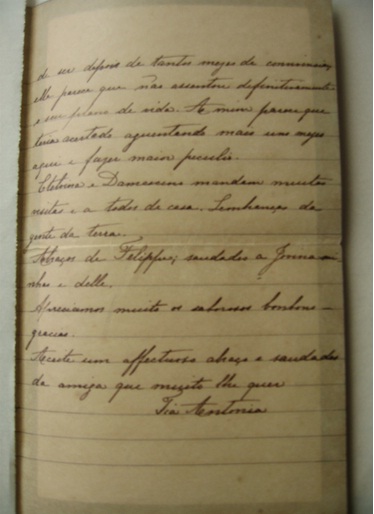 de ser depois de tantos mezes de convivencia,
elle parece que não assentou definitivamente
o seu plano de vida. A mim parece que
teria acertado aguentando mais uns mezes
aqui e fazer maior peculio.
e Damascena mandam muitas
visitas e a todos de casa. Lembranças da
gente da terra.
Abraços de Felippe; saudades a mi
nhas e delle.
Apreciamos muito os saborosos bonbons -
gracias.
Aceite um affectuoso abraço e saudades
da amiga que muito lhe quer
Tia Antonia